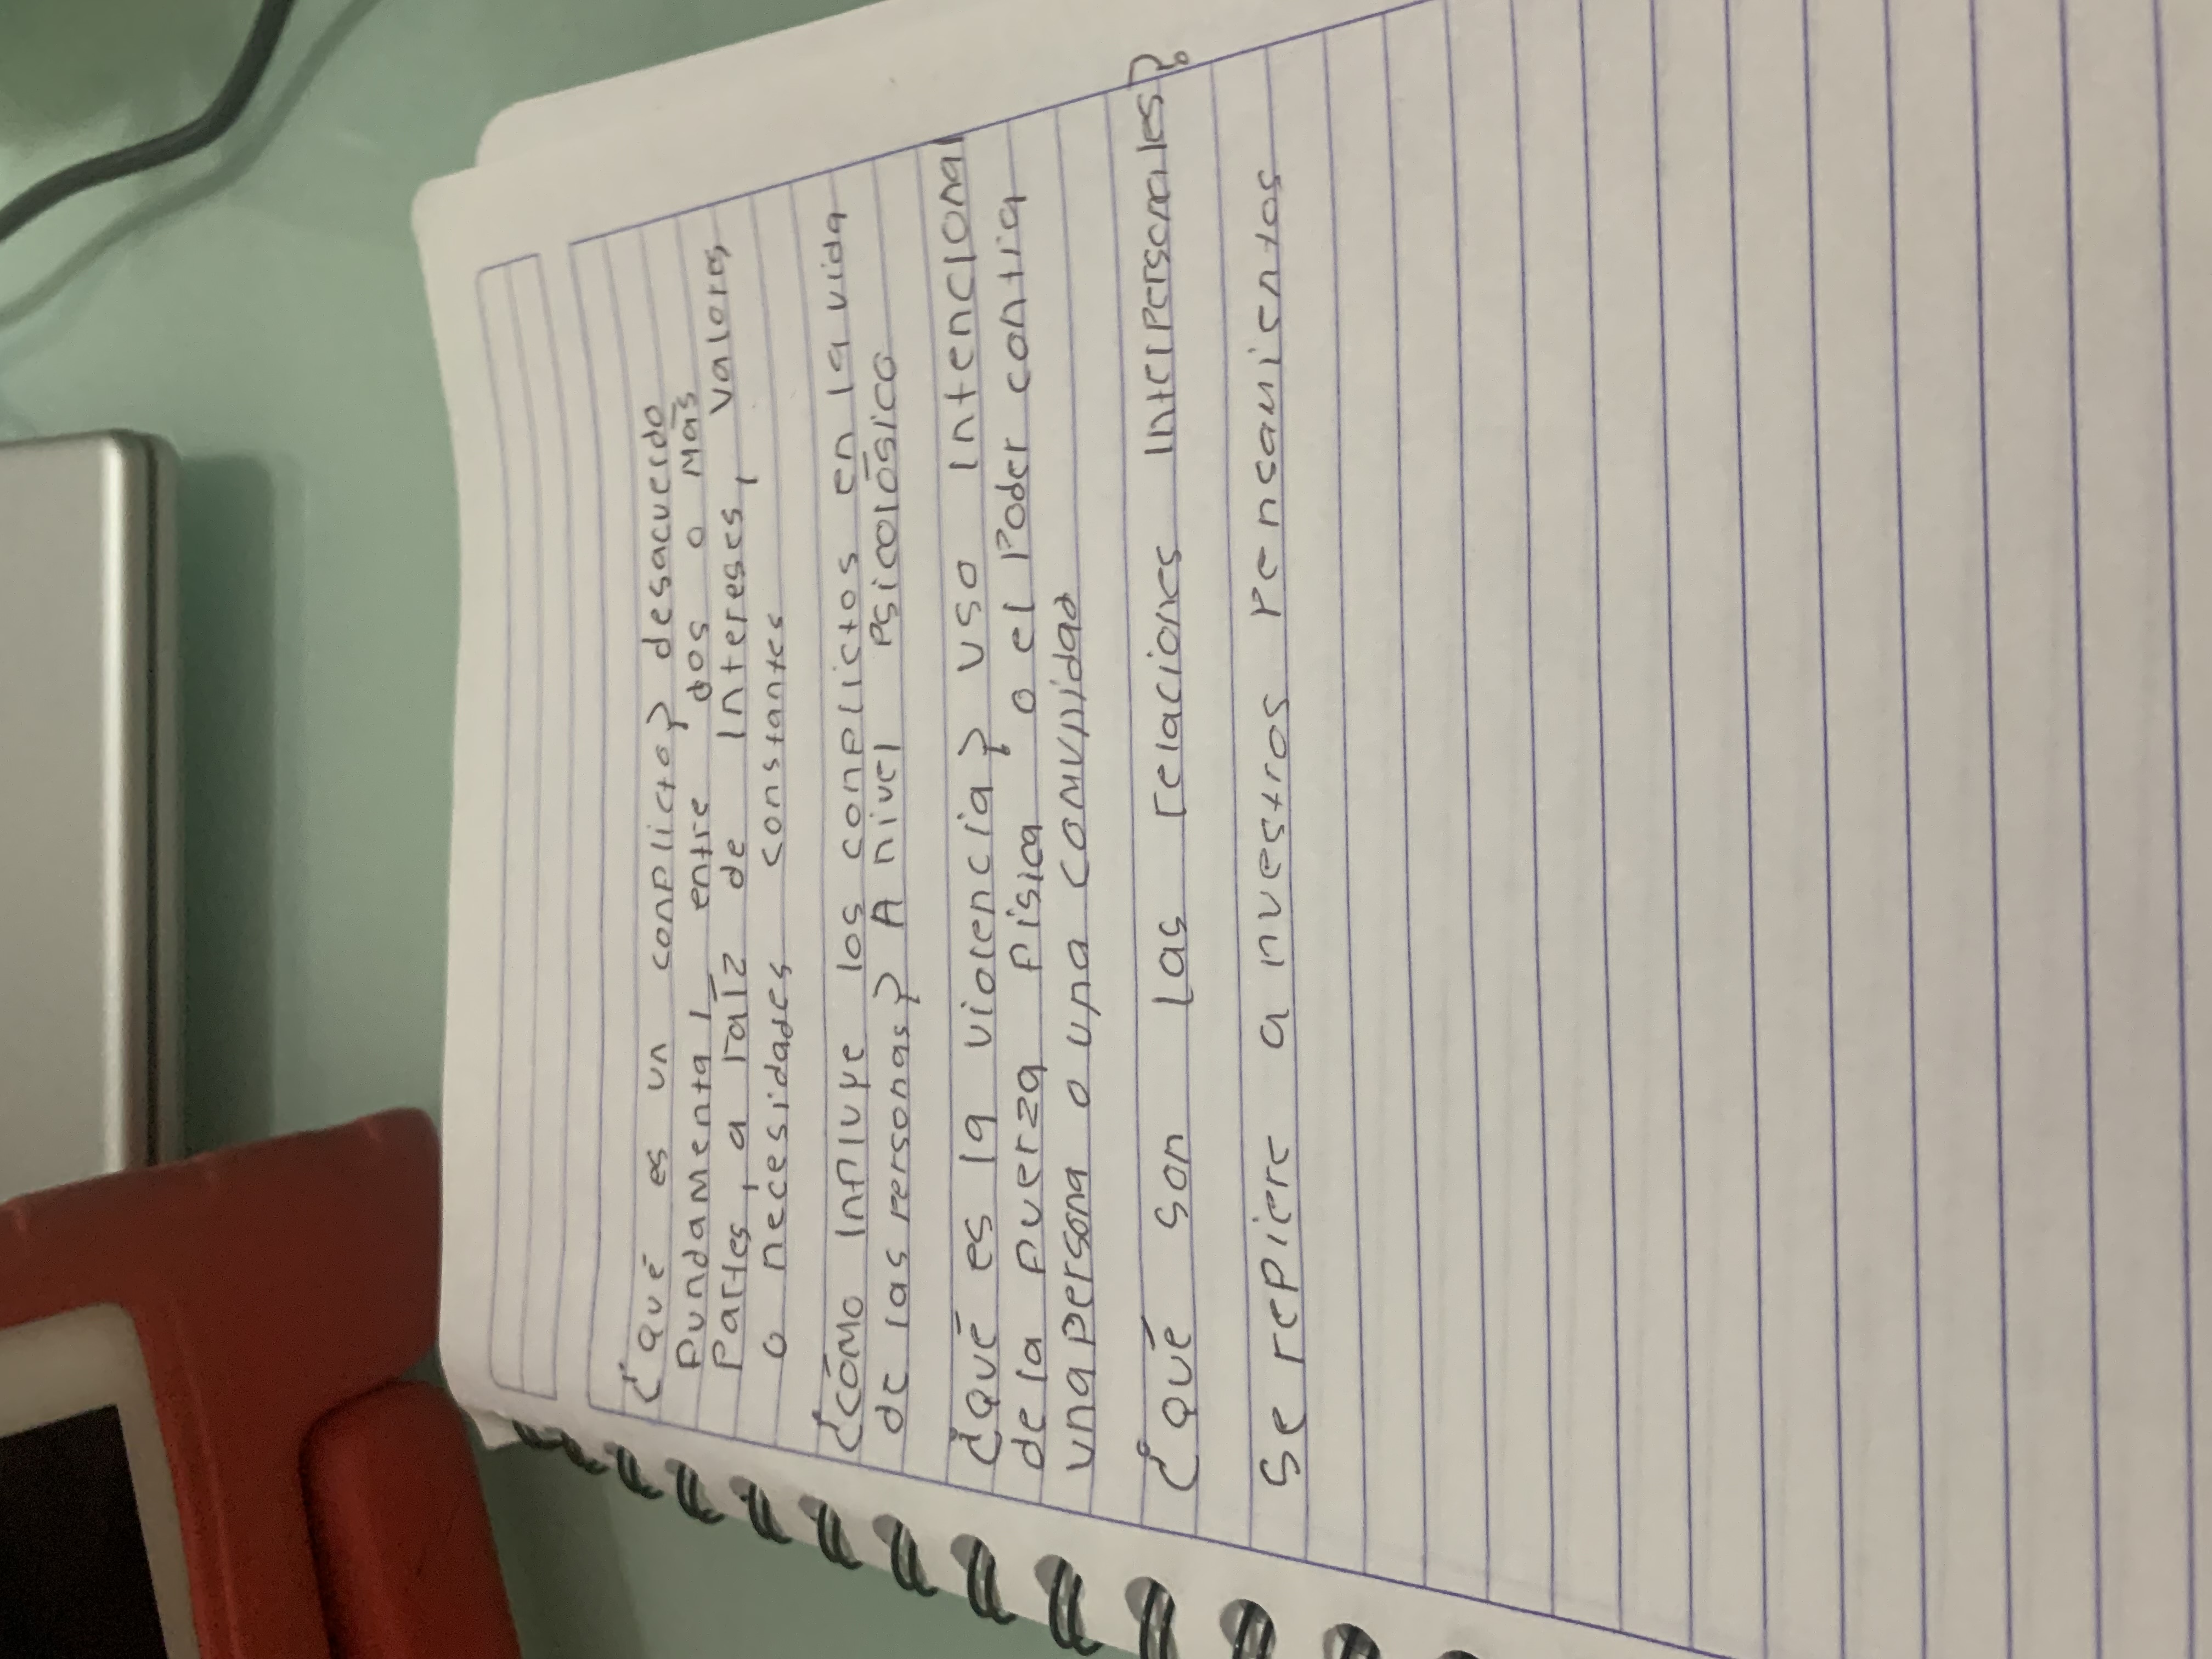 ¿qué es un conflicto? desacuerdo
fundamental, entre dos o más
Partes, a raíz de Intereses, valores
o necesidades constantes
¿cómo Influye los conflictos en la vida
de las personas? A nivel Psicológico
¿qué es la violencia? uso Intencional
de la fuerza física o el Poder contra
una persona o una comunidad
¿qué son las relaciones Interpersonales?
Se refiere a nuestros Pensamientos